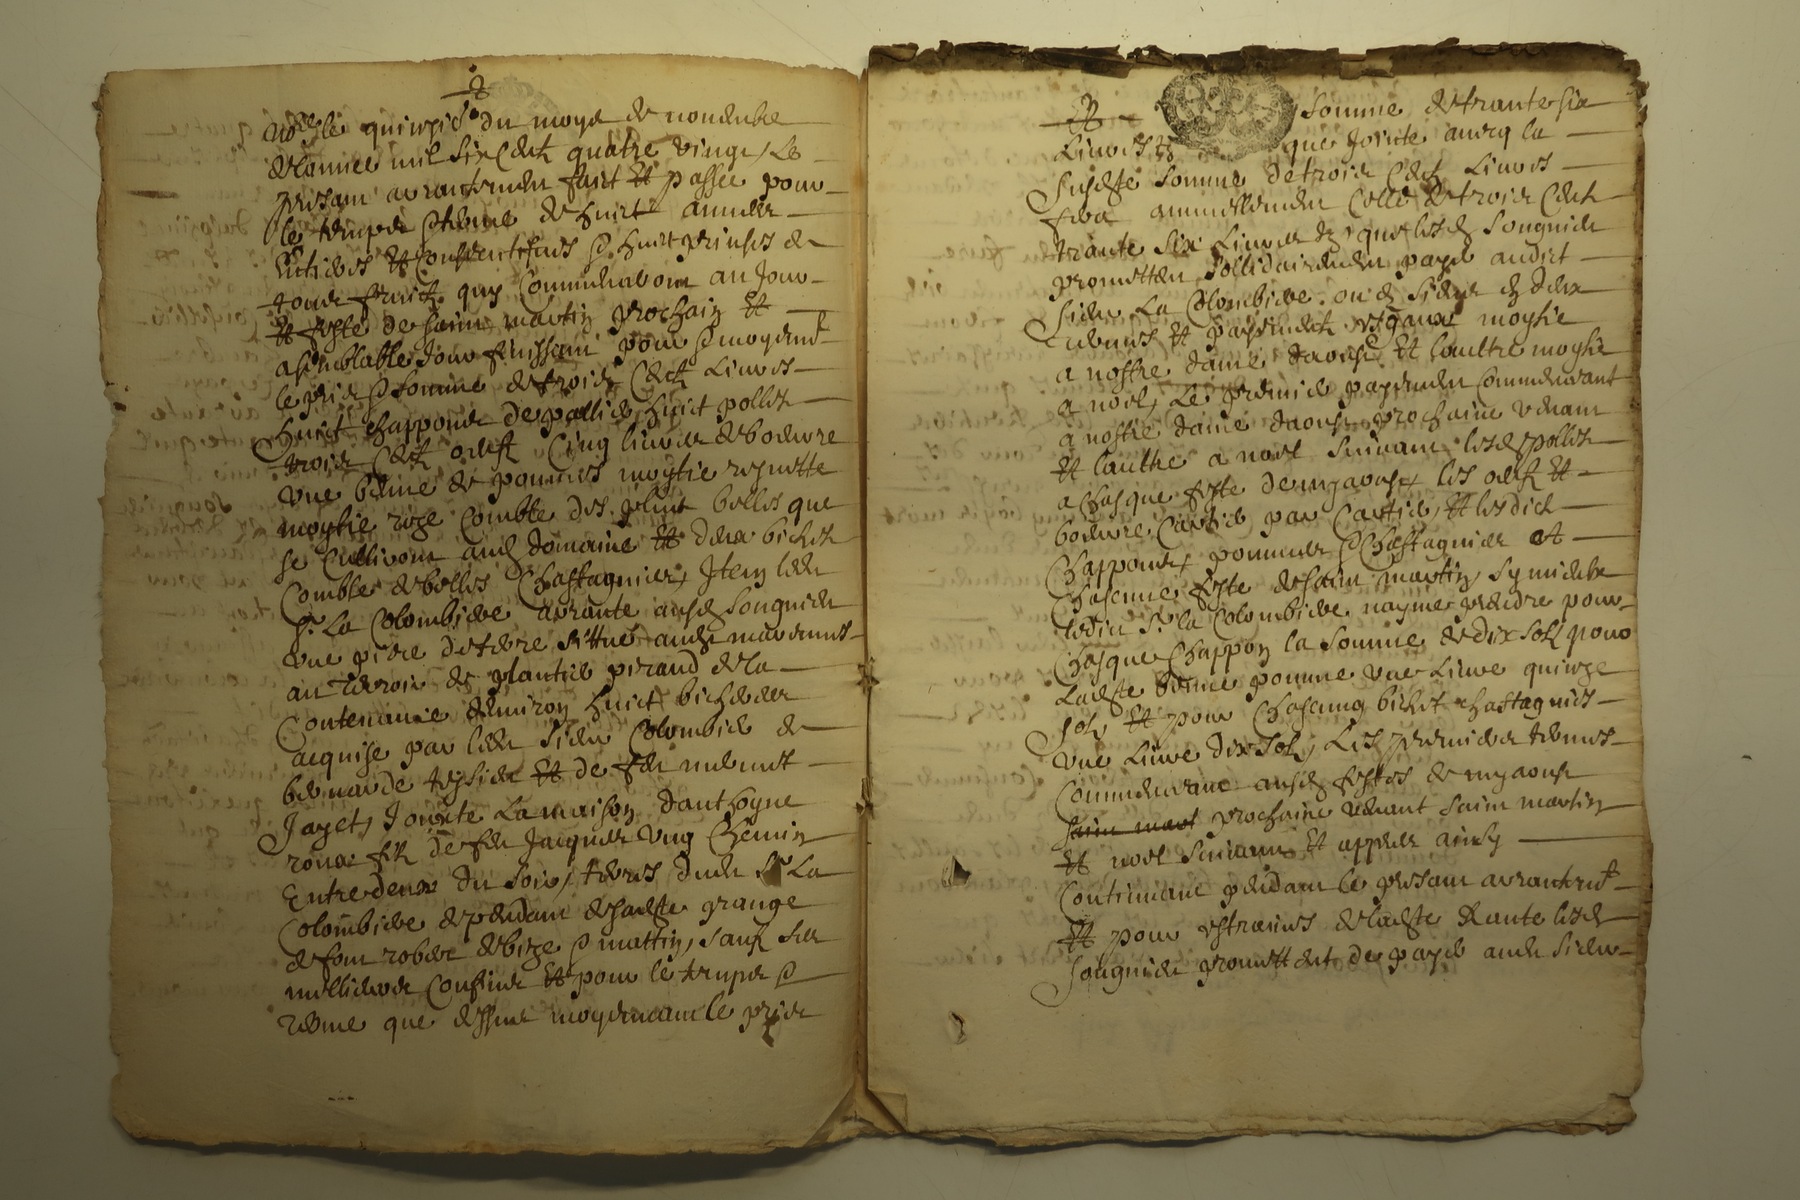 nore le quinzie du moys de novembre
de l'année mil six cent quatre vingt, Le
présent arrantement faict et passée pour
le temps & terme de huict années
entieres et consecutifves & huict prinses de
tous fruictz quy commenceront au jour
et feste de saint martin prochain et
a semblable jour finissant pour & moyenent
le prix & somme de trois cent livres
huict chappons de pallier huict pollets
trois cent oeufs cinq livres de beurre
une benne de pommes moytie reynette
moytie roze comble des plus belles que
se cullivont aud domaine et deux bichets
comble de belles chastagnies, Item led
sr La Colombiere arrante ausd Souguiers
une piece de terre située
au terroir de plantier peraud de la
Contenance denviron huict bicherees
acquise par led sieur Colombier de
bernarde teysier et de feu
Jayet, Jouxte La maison danthoyne
roux filz de feu Jacques ung Chemin
Entre deux du soir, terres dud Sr La
Colombiere dependant de sadte grange
de
milliers confins et pour le temps &
terme que dessus moyennant le prix
et somme de trante six
Livres que Jointe avecq la
susdte somme de trois cent Livres
fera annuellement celle de trois cent
trante six Livres lesd Souguiers
promettent sollidairement payer audict
sieur La Colombiere ou es siens en deux
termes et payements esgaux moytie
a nostre dame daoust et laultre moytie
a noel, Le premier payement commencant
a nostre dame daoust prochaine venant
et laultre a noel suivant lesd pollets
a chasque feste de myaoust, les oeufs et
beurre cartier par cartier, et lesdict
chappons, pommes & chastagnies at
chascune feste de saint martin, sy mieux
ledict sr la Colombiere nayme prendre pour
chasque chappon la somme de dix solz pour
Ladte benne pomme une Livre quinze
solz et pour chascung bichet chastagnies
une Livre dix solz, Les premiers termes
commencant ausd festes de myaoust
saint mart prochaine venant saint martin
et noel suivant et appres ainsy
continuant pendant le present arrantemt
et pour estraines de ladte Rante lesd
Souguiers promettent de payer aud sieur